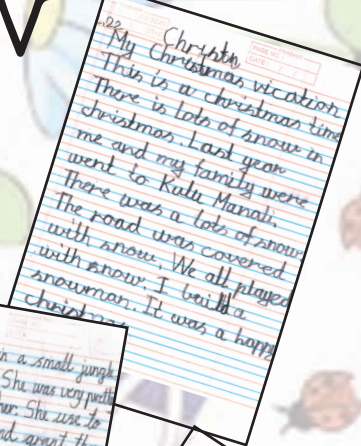 22
Christm
My Christmas, vication
This is a christmas time
There is lots of snow in
christmas. Last year
me and my family were
went to Kulu Manali.
There was a lots of snow
The road was covered
with snow. We all played
with snow. I build a
snowman. It was a happy
christmas
in a small jungle
She was very prett
her. She use to
nd grant th